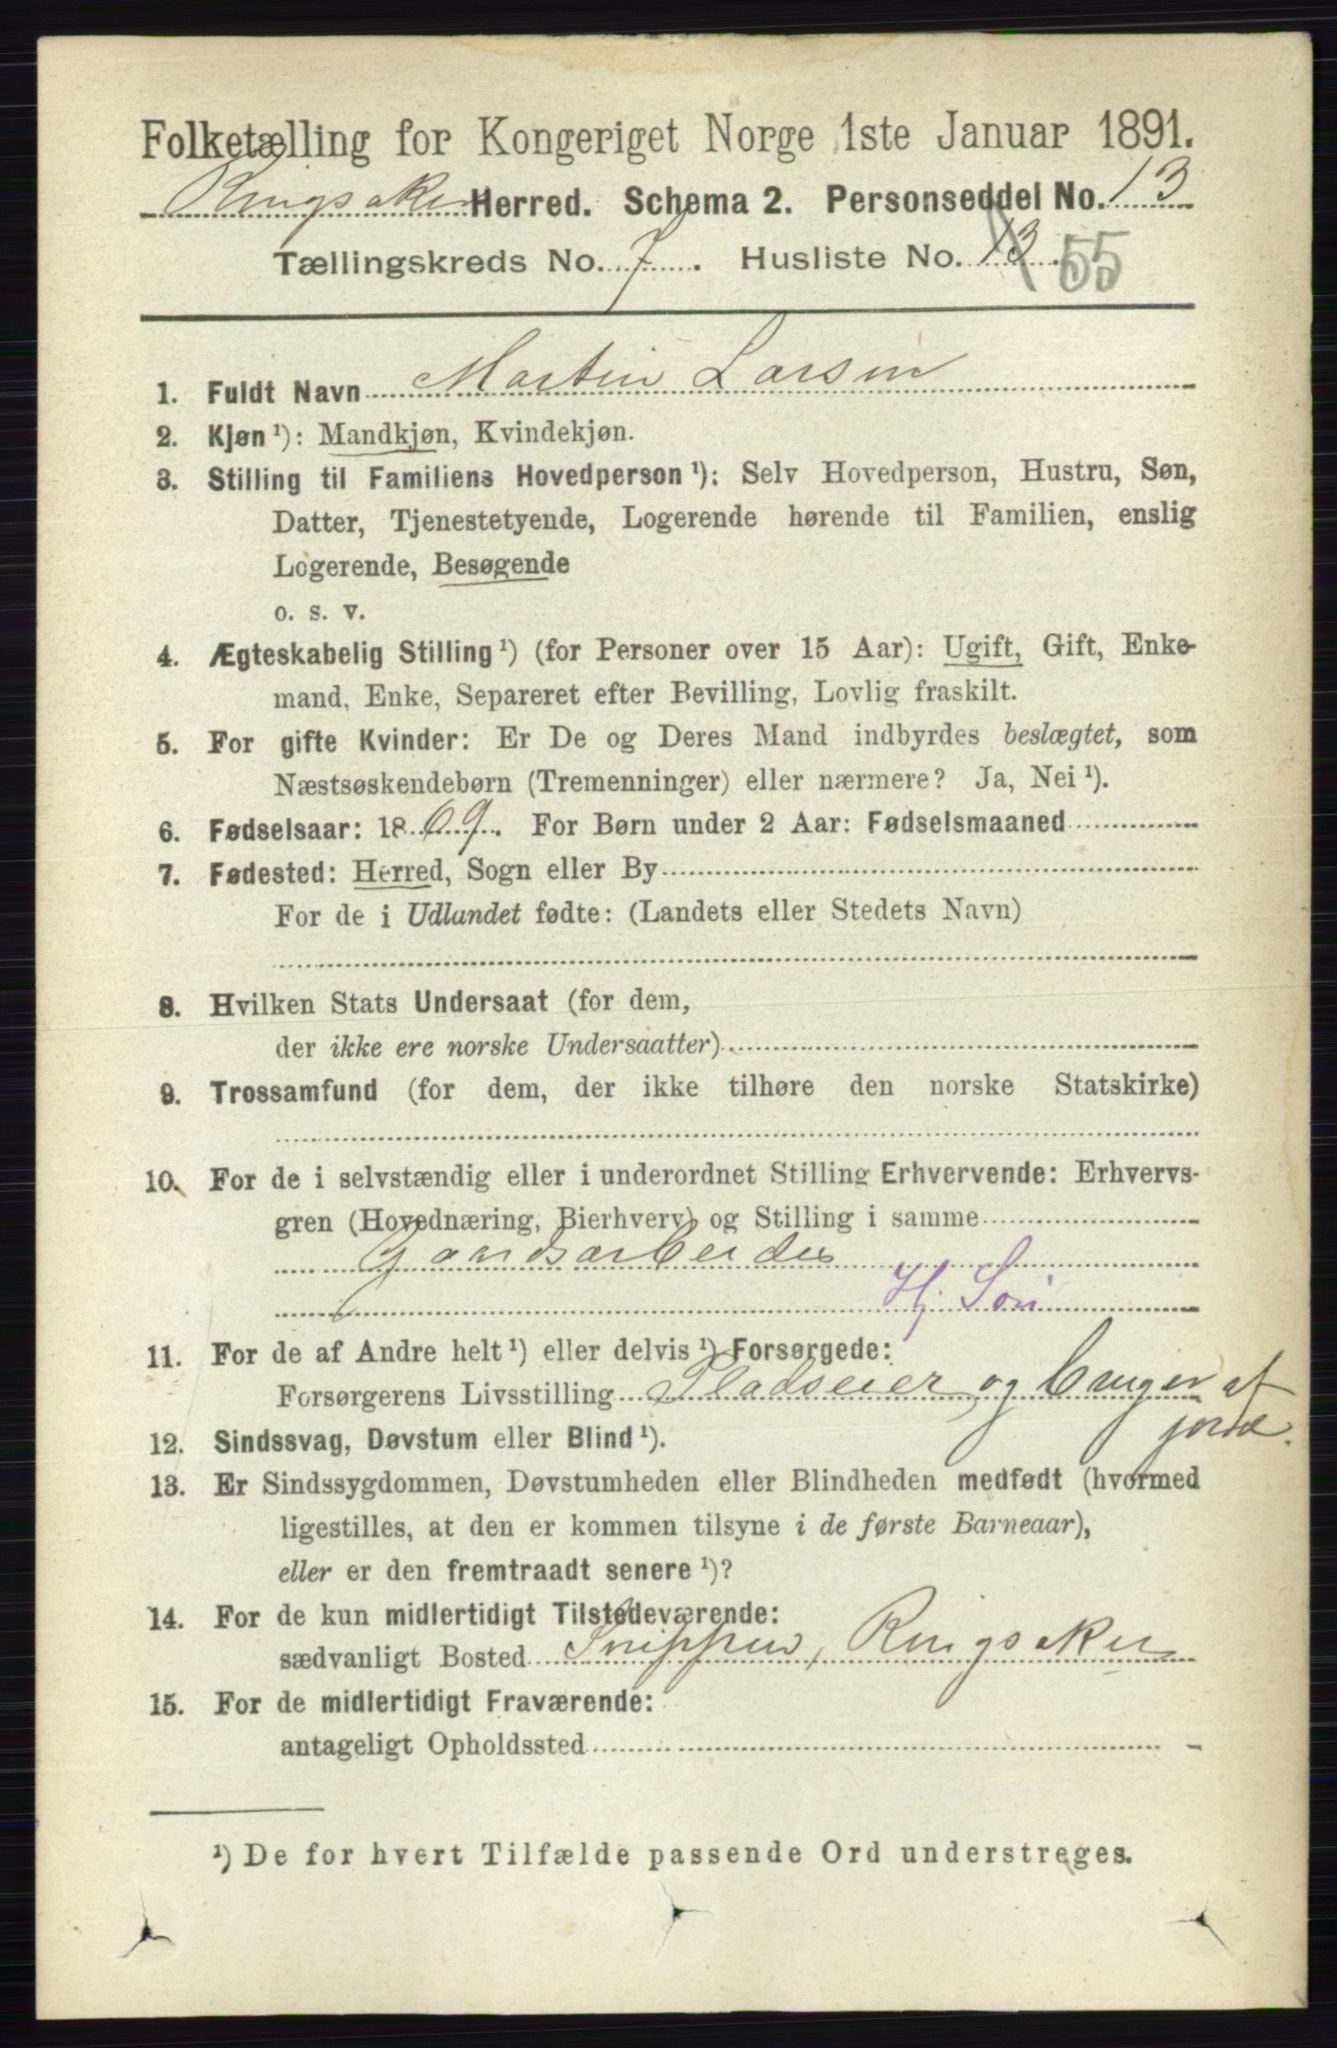 Folketælling for Kongeriget Norge 1ste Januar 1891.
Ringsaker Herred. Schema 2. Personseddel No. 13
Tællingskreds No. 7. Husliste No. 13. 55
1. Fuldt Navn Martin Larsen
2. Kjøn ¹): Mandkjøn, Kvindekjøn.
3. Stilling til Familiens Hovedperson ¹): Selv Hovedperson, Hustru, Søn,
Datter, Tjenestetyende, Logerende hørende til Familien, enslig
Logerende, Besøgende
o. s. v.
4. Ægteskabelig Stilling ¹) (for Personer over 15 Aar): Ugift, Gift, Enke-
mand, Enke, Separeret efter Bevilling, Lovlig fraskilt.
5. For gifte Kvinder: Er De og Deres Mand indbyrdes beslægtet, som
Næstsøskendebørn (Tremenninger) eller nærmere? Ja, Nei ¹).
6. Fødselsaar: 1869. For Børn under 2 Aar: Fødselsmaaned
7. Fødested: Herred, Sogn eller By
For de i Udlandet fødte: (Landets eller Stedets Navn)
8. Hvilken Stats Undersaat (for dem,
der ikke ere norske Undersaatter)
9. Trossamfund (for dem, der ikke tilhøre den norske Statskirke)
10. For de i selvstændig eller i underordnet Stilling Erhvervende: Erhvervs-
gren (Hovednæring, Bierhverv) og Stilling i samme
Gaardsarbeider
Hj. Søn
11. For de af Andre helt ¹) eller delvis ¹) Forsørgede:
Forsørgerens Livsstilling Pladseier og bruger af
jord.
12. Sindssvag, Døvstum eller Blind ¹).
13. Er Sindssygdommen, Døvstumheden eller Blindheden medfødt (hvormed
ligestilles, at den er kommen tilsyne i de første Barneaar),
eller er den fremtraadt senere ¹)?
14. For de kun midlertidigt Tilstedeværende:
sædvanligt Bosted Snippen, Ringsaker
15. For de midlertidigt Fraværende:
antageligt Opholdssted
¹) De for hvert Tilfælde passende Ord understreges.